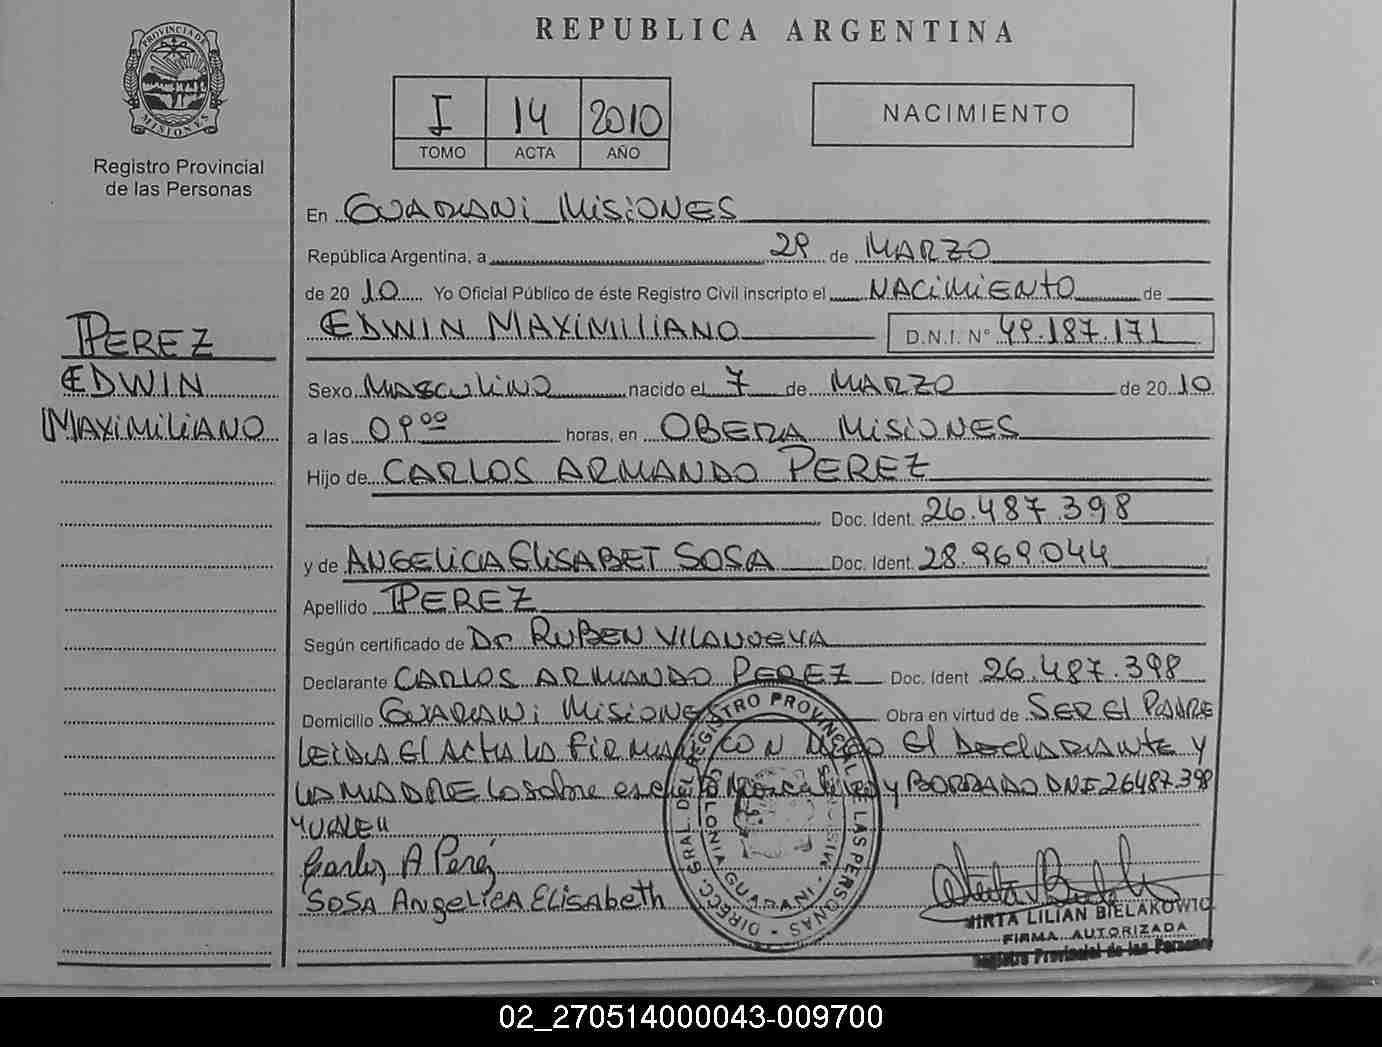 REPUBLICA ARGENTINA
PROVINCIA DE
MISIONES
Registro Provincial
de las Personas
I 14 2010
TOMO ACTA AÑO
NACIMIENTO
En GUARANI MISIONES
República Argentina, a 29 de MARZO
de 20 10 Yo Oficial Público de éste Registro Civil inscripto el NACIMIENTO de
EDWIN MAXIMILIANO D.N.I. Nº 49.187.171
PEREZ
EDWIN
MAXIMILIANO
Sexo MASCULINO nacido el 7 de MARZO de 20 10
a las 09 00 horas, en OBERA MISIONES
Hijo de CARLOS ARMANDO PEREZ
Doc. Ident. 26.487.398
y de ANGELICA ELISABET SOSA Doc. Ident. 28.969.044
Apellido PEREZ
Según certificado de Dr RUBEN VILANUEVA
Declarante CARLOS ARMANDO PEREZ Doc. Ident 26.487.398
Domicilio GUARANI MISIONES Obra en virtud de SER El PADRE
LEIDA El ACTA LA FIRMAN CON MIGO El DECLARANTE y
LA MADRE Lo sobre escrito y BORRADO DNI 26487.398
"VALE"
Carlos A Peréz
SOSA AngelicA ElisAbeth
DIRECC. GRAL. DEL REGISTRO PROVINCIAL DE LAS PERSONAS
COLONIA GUARANI
MIRTA LILIAN BIELAKOWIC
FIRMA AUTORIZADA
Registro Provincial de las Personas
02_270514000043-009700